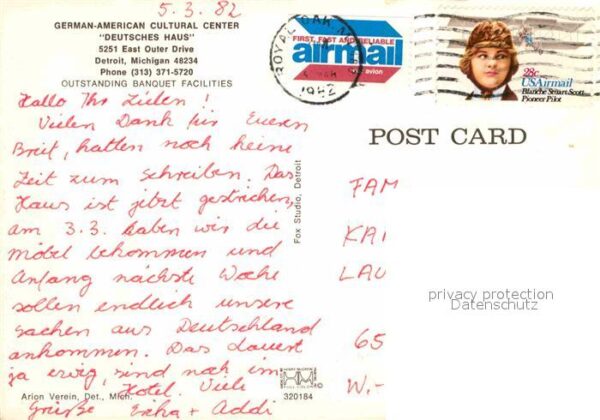 5.3.82
GERMAN-AMERICAN CULTURAL CENTER
"DEUTSCHES HAUS"
5251 East Outer Drive
Detroit, Michigan 48234
Phone (313) 371-5720
OUTSTANDING BANQUET FACILITIES
Hallo Ihr Lieben!
Vielen Dank für Euern
Breif, hatten noch keine
Zeit zum schreiben. Das
Haus ist jetzt gestrichen,
am 3.3. haben wir die
möbel bekommen und
Anfang nächste Woche
sollen endlich unsere
sachen aus Deutschland
ankommen. Das dauert
ja ewig, sind noch im
Hotel. Viele
Grüße Erika + Addi
Arion Verein, Det., Mich.
Fox Studio, Detroit
320184
ROYAL OAK
MAR
1982
FIRST, FAST AND RELIABLE
airmail
par avion
28c
USAirmail
Blanche Stuart Scott
Pioneer Pilot
POST CARD
FAM
KAI
LAU
65
W.-
privacy protection
Datenschutz